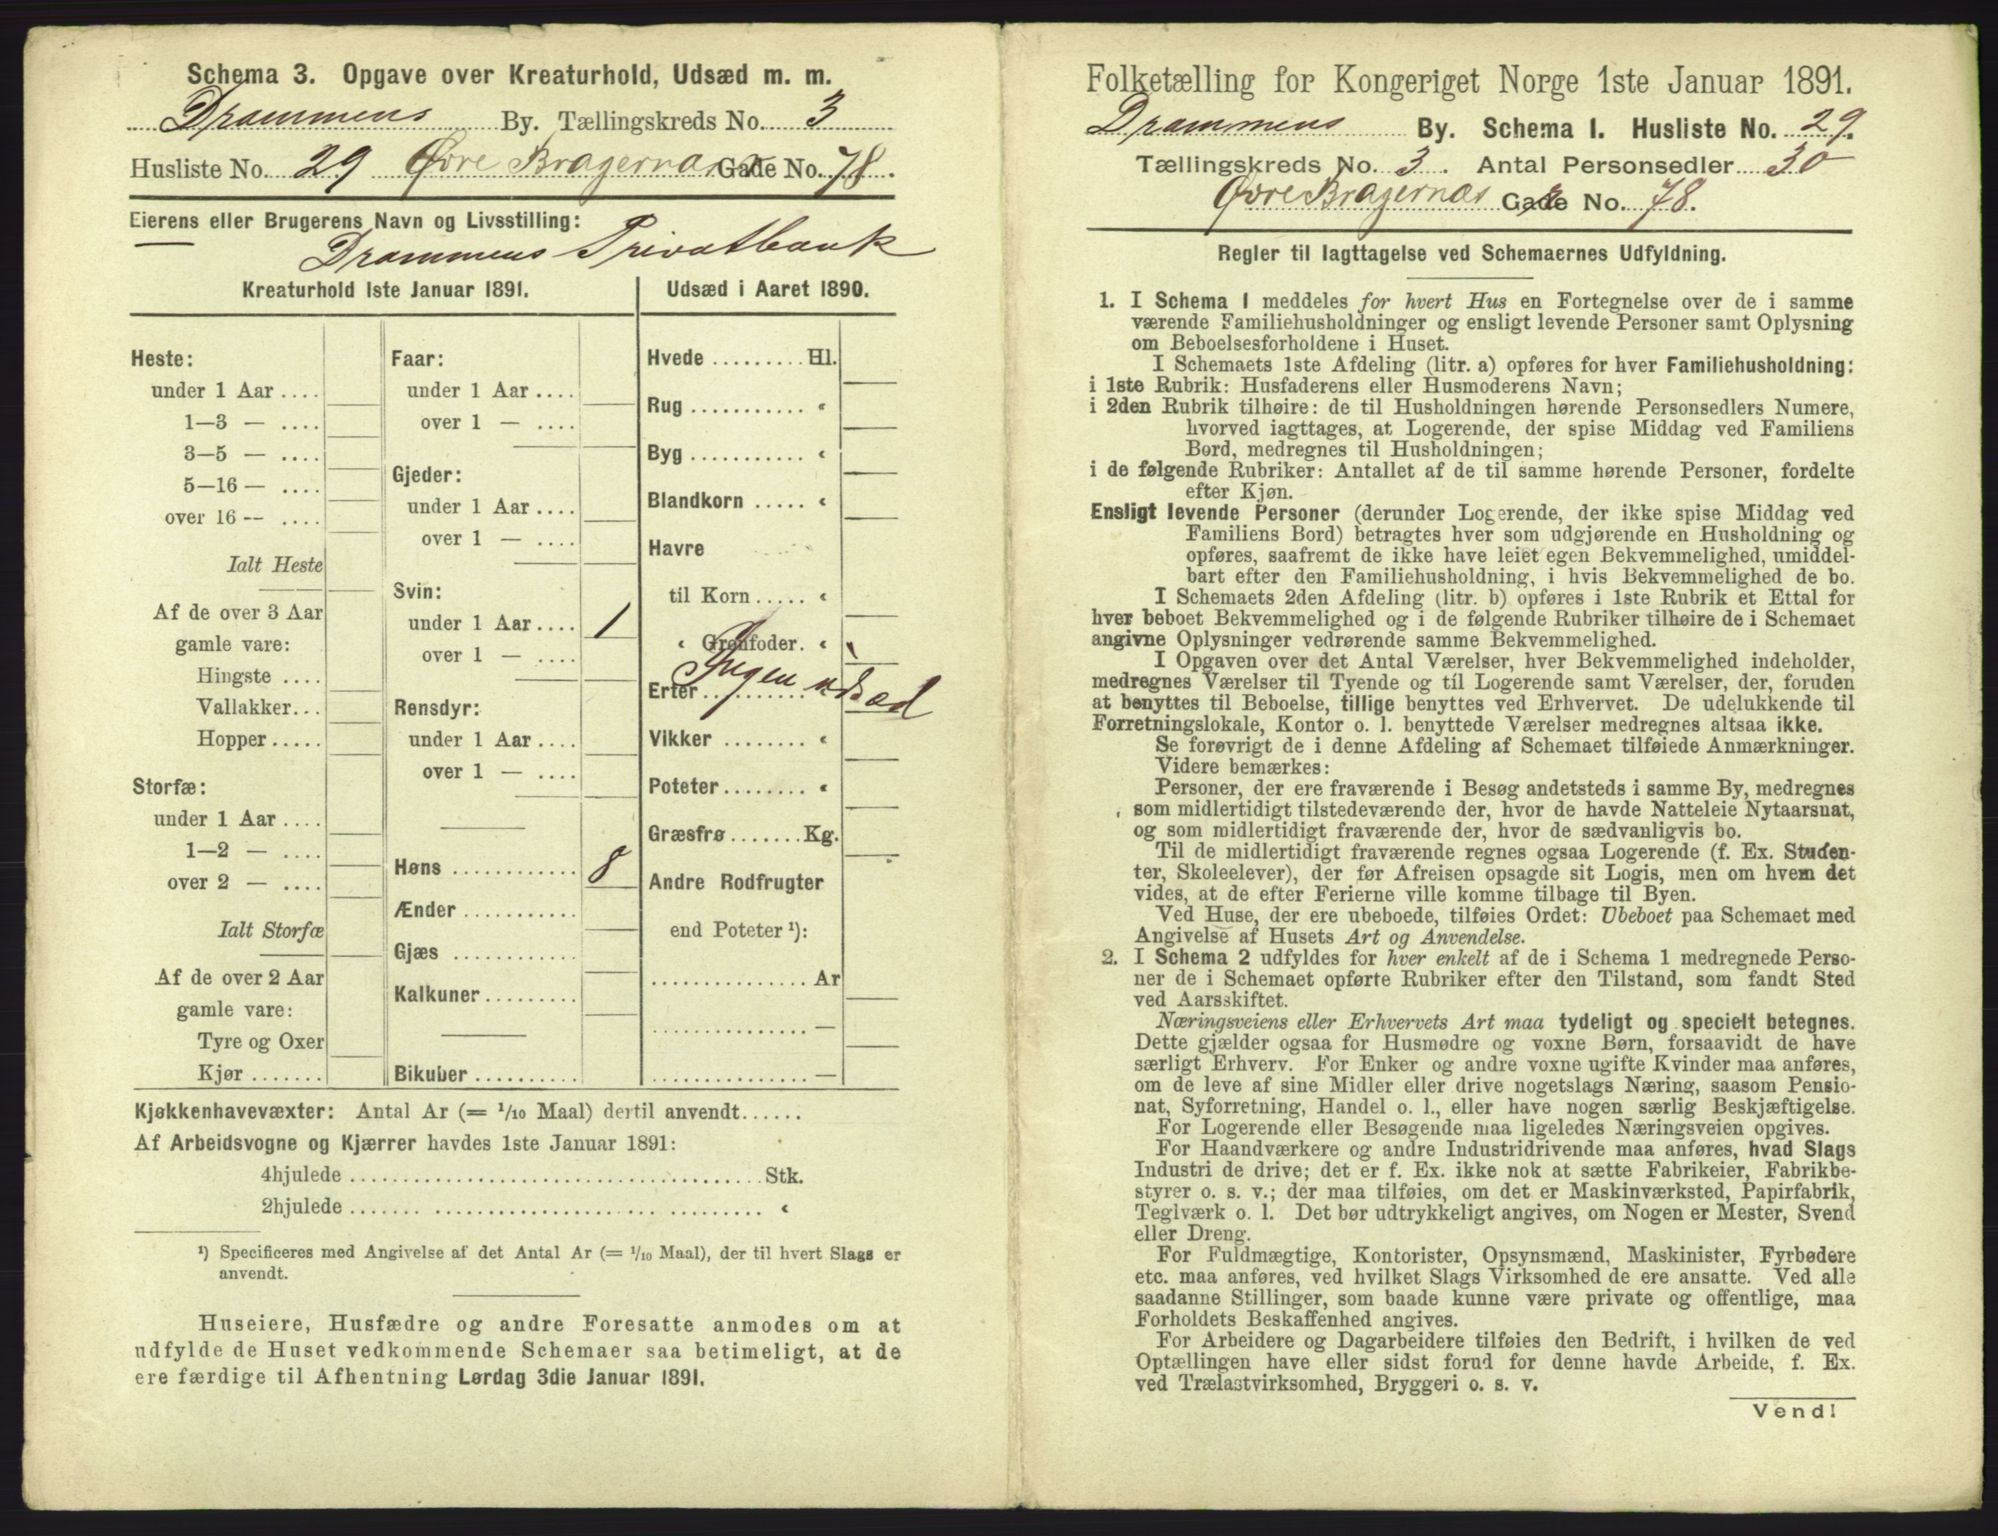 Schema 3. Opgave over Kreaturhold, Udsæd m. m.
Drammens By. Tællingskreds No. 3
Husliste No. 29 Øvre Bragernæs Gade No. 78.
Eierens eller Brugerens Navn og Livsstilling:
Drammens Privatbank
Kreaturhold 1ste Januar 1891.
Heste:
under 1 Aar ....
1—3 — ....
3—5 — ....
5—16 — ....
over 16 -- ....
Ialt Heste
Af de over 3 Aar
gamle vare:
Hingste ....
Vallakker...
Hopper.....
Storfæ:
under 1 Aar ....
1—2 — ....
over 2 — ....
Ialt Storfæ
Af de over 2 Aar
gamle vare:
Tyre og Oxer
Kjør .......
Faar:
under 1 Aar ....
over 1 — ....
Gjeder:
under 1 Aar ....
over 1 — ....
Svin:
under 1 Aar .... 1
over 1 — ....
Rensdyr:
under 1 Aar ....
over 1 — ....
Høns ............ 8
Ænder ...........
Gjæs ............
Kalkuner.........
Bikuber ..........
Udsæd i Aaret 1890.
Hvede ........ Hl.
Rug ........... "
Byg ........... "
Blandkorn ..... "
Havre
til Korn..... "
" Grønfoder. "
Ingen udsæd
Erter .......... "
Vikker ........ "
Poteter ........ "
Græsfrø ....... Kg.
Andre Rodfrugter
end Poteter ¹):
............... Ar
............... —
............... —
Kjøkkenhavevæxter: Antal Ar (= 1/10 Maal) dertil anvendt......
Af Arbeidsvogne og Kjærrer havdes 1ste Januar 1891:
4hjulede ........................................ Stk.
2hjulede ........................................ "
¹) Specificeres med Angivelse af det Antal Ar (= 1/10 Maal), der til hvert Slags er
anvendt.
Huseiere, Husfædre og andre Foresatte anmodes om at
udfylde de Huset vedkommende Schemaer saa betimeligt, at de
ere færdige til Afhentning Lørdag 3die Januar 1891.
Folketælling for Kongeriget Norge 1ste Januar 1891.
Drammens By. Schema 1. Husliste No. 29.
Tællingskreds No. 3. Antal Personsedler 30
Øvre Bragernæs Gade No. 78.
Regler til Iagttagelse ved Schemaernes Udfyldning.
1. I Schema 1 meddeles for hvert Hus en Fortegnelse over de i samme
værende Familiehusholdninger og ensligt levende Personer samt Oplysning
om Beboelsesforholdene i Huset.
I Schemaets 1ste Afdeling (litr. a) opføres for hver Familiehusholdning:
i 1ste Rubrik: Husfaderens eller Husmoderens Navn;
i 2den Rubrik tilhøire: de til Husholdningen hørende Personsedlers Numere,
hvorved iagttages, at Logerende, der spise Middag ved Familiens
Bord, medregnes til Husholdningen;
i de følgende Rubriker: Antallet af de til samme hørende Personer, fordelte
efter Kjøn.
Ensligt levende Personer (derunder Logerende, der ikke spise Middag ved
Familiens Bord) betragtes hver som udgjørende en Husholdning og
opføres, saafremt de ikke have leiet egen Bekvemmelighed, umiddel-
bart efter den Familiehusholdning, i hvis Bekvemmelighed de bo.
I Schemaets 2den Afdeling (litr. b) opføres i 1ste Rubrik et Ettal for
hver beboet Bekvemmelighed og i de følgende Rubriker tilhøire de i Schemaet
angivne Oplysninger vedrørende samme Bekvemmelighed.
I Opgaven over det Antal Værelser, hver Bekvemmelighed indeholder,
medregnes Værelser til Tyende og til Logerende samt Værelser, der, foruden
at benyttes til Beboelse, tillige benyttes ved Erhvervet. De udelukkende til
Forretningslokale, Kontor o. l. benyttede Værelser medregnes altsaa ikke.
Se forøvrigt de i denne Afdeling af Schemaet tilføiede Anmærkninger.
Videre bemærkes:
Personer, der ere fraværende i Besøg andetsteds i samme By, medregnes
som midlertidigt tilstedeværende der, hvor de havde Natteleie Nytaarsnat,
og som midlertidigt fraværende der, hvor de sædvanligvis bo.
Til de midlertidigt fraværende regnes ogsaa Logerende (f. Ex. Studen-
ter, Skoleelever), der før Afreisen opsagde sit Logis, men om hvem det
vides, at de efter Ferierne ville komme tilbage til Byen.
Ved Huse, der ere ubeboede, tilføies Ordet: Ubeboet paa Schemaet med
Angivelse af Husets Art og Anvendelse.
2. I Schema 2 udfyldes for hver enkelt af de i Schema 1 medregnede Perso-
ner de i Schemaet opførte Rubriker efter den Tilstand, som fandt Sted
ved Aarsskiftet.
Næringsveiens eller Erhvervets Art maa tydeligt og specielt betegnes.
Dette gjælder ogsaa for Husmødre og voxne Børn, forsaavidt de have
særligt Erhverv. For Enker og andre voxne ugifte Kvinder maa anføres,
om de leve af sine Midler eller drive nogetslags Næring, saasom Pensio-
nat, Syforretning, Handel o. l., eller have nogen særlig Beskjæftigelse.
For Logerende eller Besøgende maa ligeledes Næringsveien opgives.
For Haandværkere og andre Industridrivende maa anføres, hvad Slags
Industri de drive; det er f. Ex. ikke nok at sætte Fabrikeier, Fabrikbe-
styrer o. s. v.; der maa tilføies, om det er Maskinværksted, Papirfabrik,
Teglværk o. l. Det bør udtrykkeligt angives, om Nogen er Mester, Svend
eller Dreng.
For Fuldmægtige, Kontorister, Opsynsmænd, Maskinister, Fyrbødere
etc. maa anføres, ved hvilket Slags Virksomhed de ere ansatte. Ved alle
saadanne Stillinger, som baade kunne være private og offentlige, maa
Forholdets Beskaffenhed angives.
For Arbeidere og Dagarbeidere tilføies den Bedrift, i hvilken de ved
Optællingen have eller sidst forud for denne havde Arbeide, f. Ex.
ved Trælastvirksomhed, Bryggeri o. s. v.
Vend!